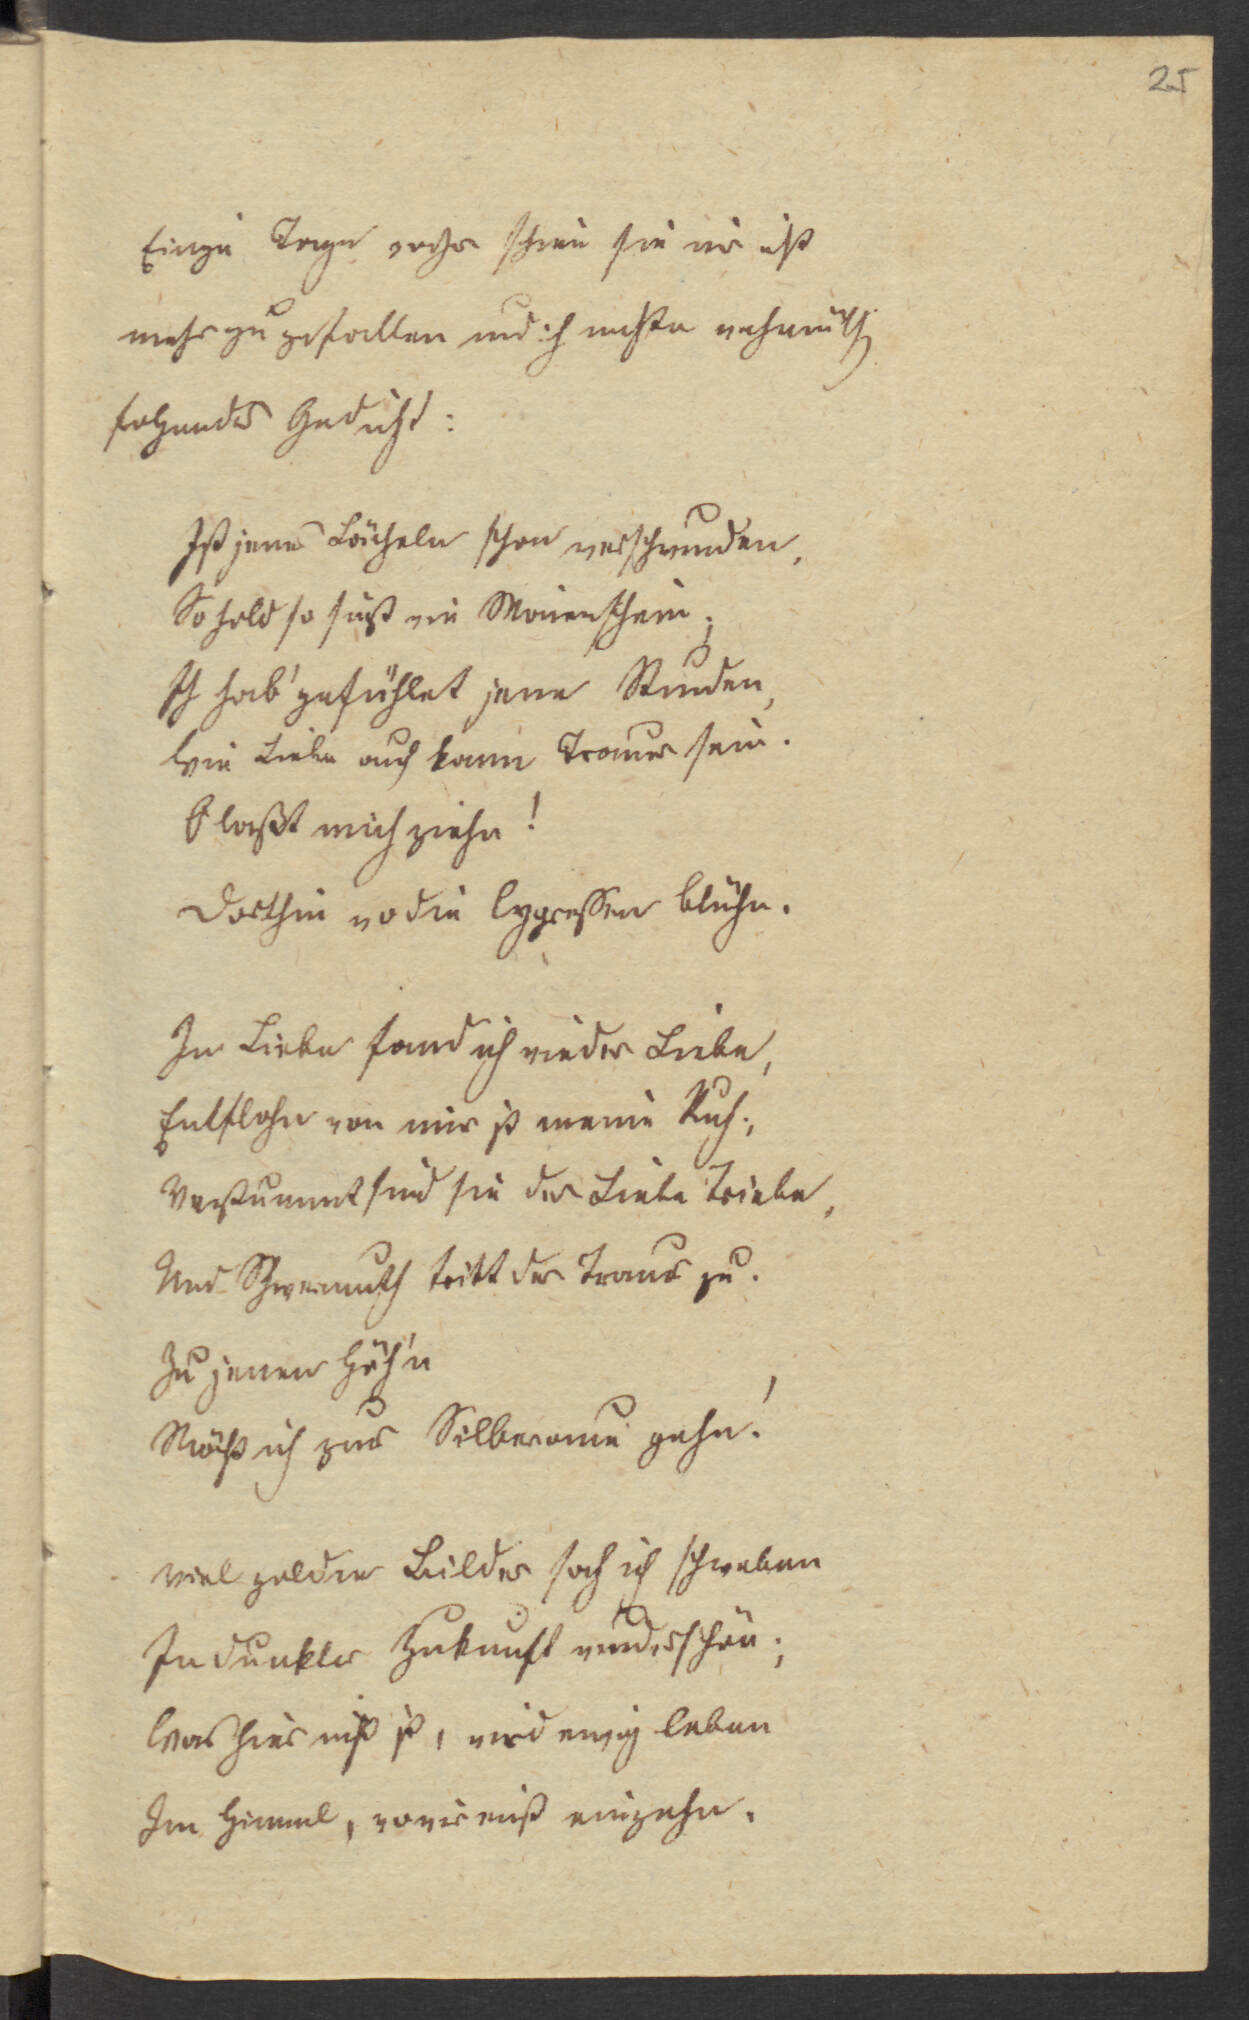 25
Einge Tage vorher schien sie mir nicht
mehr zu gefallen und ich machte wehmüthig
folgendes Gedicht:
Ist jenes Lächeln schon verschwunden,
So hold so süß wie Maienschein;
Ich hab' gefühlet jene Stunden,
Wie Liebe auch kann Trauer sein.
O laßt mich ziehn!
Dorthin wo die Cypressen blühn.
In Liebe fand ich wieder Liebe,
Entflohn von mir ist meine Ruh;
Verstummt sind sie der Liebe Triebe,
Und Schwermuth tritt der Trauer zu.
Zu jenen Höh'n
Möcht ich zur Silberaue gehn!
Viel goldne Bilder sah ich schweben
In dunkler Zukunft wunderschön;
Was hier nicht ist, wird ewig leben
Im Himmel, wo wir einst eingehn.